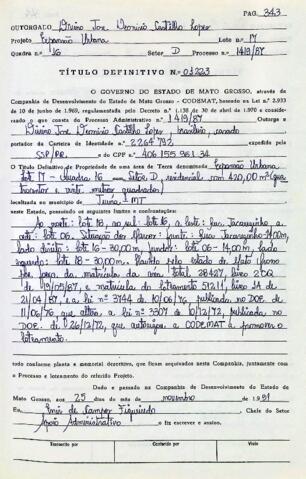 PAG 343
OUTORGADO Divino José Dionisio Castilho Lopes
Projeto Expansão Urbana Lote n.º 17
Quadra n.º 16 Setor D Processo n.º 1419/87
TÍTULO DEFINITIVO N.º 03223
O GOVERNO DO ESTADO DE MATO GROSSO, através da
Companhia de Desenvolvimento do Estado de Mato Grosso - CODEMAT, baseado na Lei n.º 2.933
de 10 de junho de 1969, regulamentada pelo Decreto n.º 1.138 de 30 de abril de 1970 e considerando
o que consta do Processo Administrativo n.º 1419/87 Outorga a
Divino José Dionisio Castilho Lopes, brasileiro, casado
portador da Carteira de Identidade n.º 2264792 expedida pela
SSP/PR. e do CPF n.º 406.155.961.34
o Título Definitivo de Propriedade de uma área de Terra denominada Expansão Urbana
Lote 17 - Quadra 16 - Setor D, residencial com 420,00 m² (qua
trocentos e vinte metros quadrados)
localizada no município de Juina MT
neste Estado, possuindo os seguintes limites e confrontações:
Ao norte: lote 18, ao sul: lote 16, a leste: Rua Jacarezinho a
oeste: lote 06. Situação dos Marcos: frente: Rua Jacarezinho 14,00m,
lado direito: lote 16 - 30,00m, fundos: lote 06 - 14,00m, lado
esquerdo: lote 18 - 30,00m. Havido pelo estado de Mato Grosso
por força da matrícula da área total 28427, livro 2DQ
de 19/05/87, e matrícula do loteamento 51211, livro 3A
21/04/87, e a lei nº 3744 de 10/06/76, publicada no DOE de
11/06/76 que altera a lei nº 3307 de 10/12/72, publicada no
DOE. de 26/12/72, que autorizou a CODEMAT a promover o
loteamento.
tudo conforme planta e memorial descritivo, que ficam arquivados nesta Companhia, juntamente com
o Processo e loteamento do referido Projeto.
Dado e passado na Companhia de Desenvolvimento do Estado de
Mato Grosso, aos 25 dias do mês de novembro de 1991
Eu, Inês de Campos Figueiredo Chefe do Setor
Apoio Administrativo o fiz escrever e assino.
Transcrito por Conferido por Visto